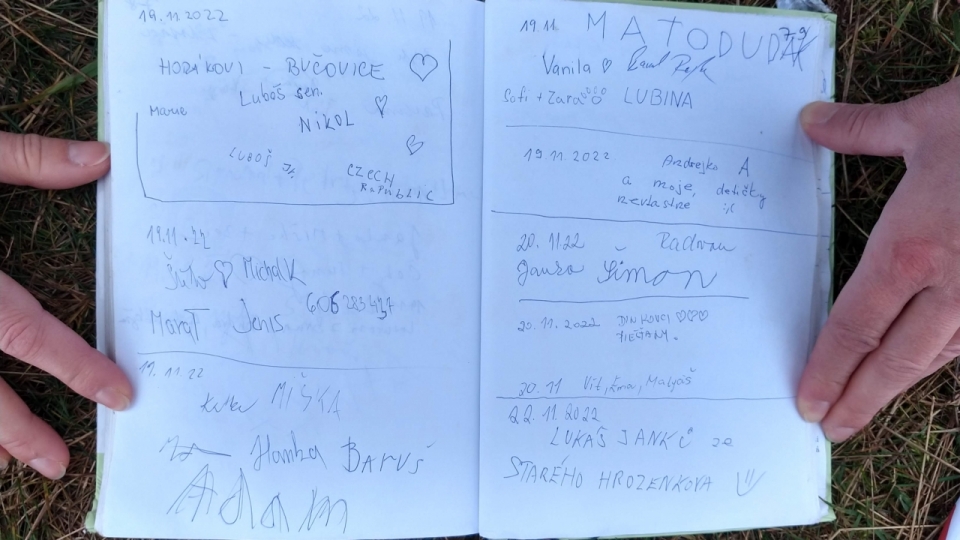 19.11.2022
HORÁKOVI - BUČOVICE
Luboš sen.
Marie
NIKOL
LUBOŠ JR.
CZECH
REPUBLIC
19.11.22
Michal K
606283437
Marat Denis
19.11.22
Katka MIŠKA
Hanka BARUŠ
Adam
19.11. MATODUDÁK
Vanila
Sofi + Zara LUBINA
19.11.2022
Andrejko A
a moje detičky
nevlastné :(
20.11.22 Radvan
Janka Šimon
20.11.2022
PIEŠŤANY.
20.11 Vít, Ema, Matyáš
22.11.2022
LUKÁŠ JANKŮ ze
STARÉHO HROZENKOVA